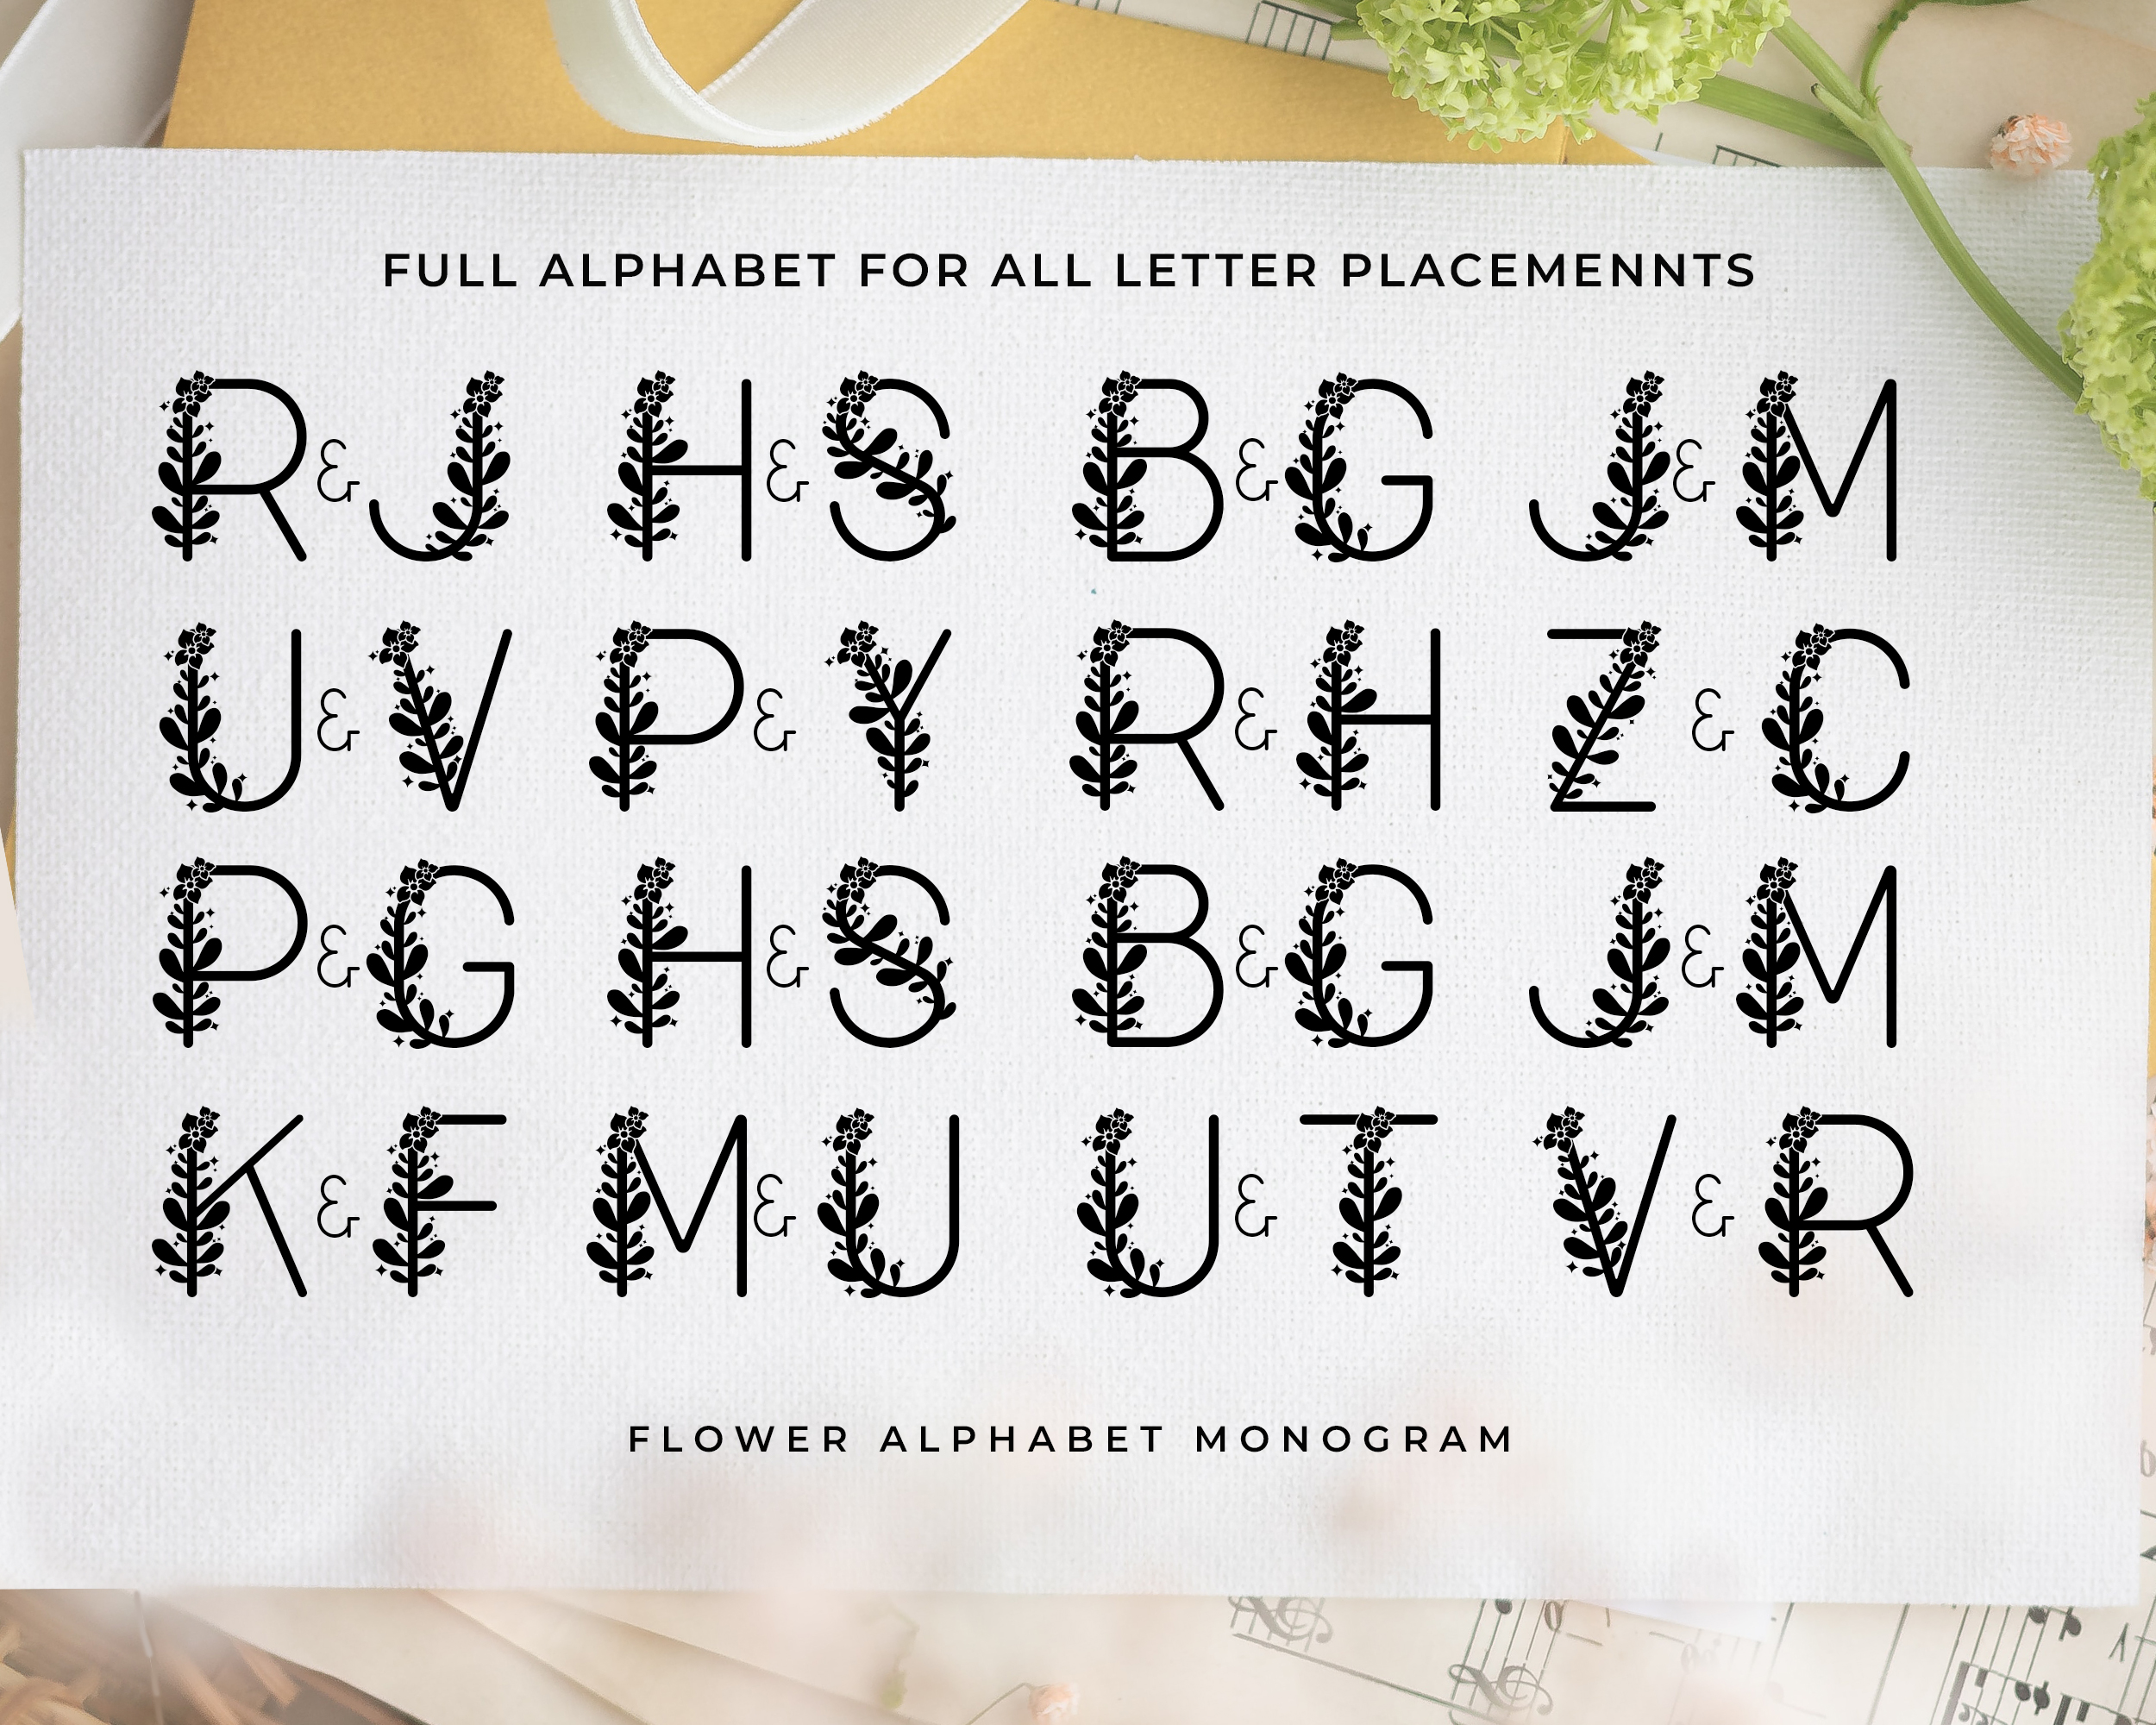 FULL ALPHABET FOR ALL LETTER PLACEMENNTS
R & J H & S B & G J & M
U & V P & Y R & H Z & C
P & G H & S B & G J & M
K & F M & U U & T V & R
FLOWER ALPHABET MONOGRAM